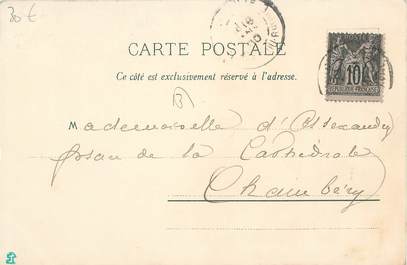 30€
CARTE POSTALE
Ce côté est exclusivement réservé à l'adresse.
10
RÉPUBLIQUE FRANÇAISE
Mademoiselle d'Alexandry
de la Cathédrale
Chambéry